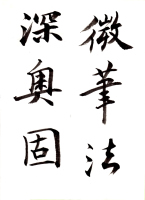 微筆法
深奥固